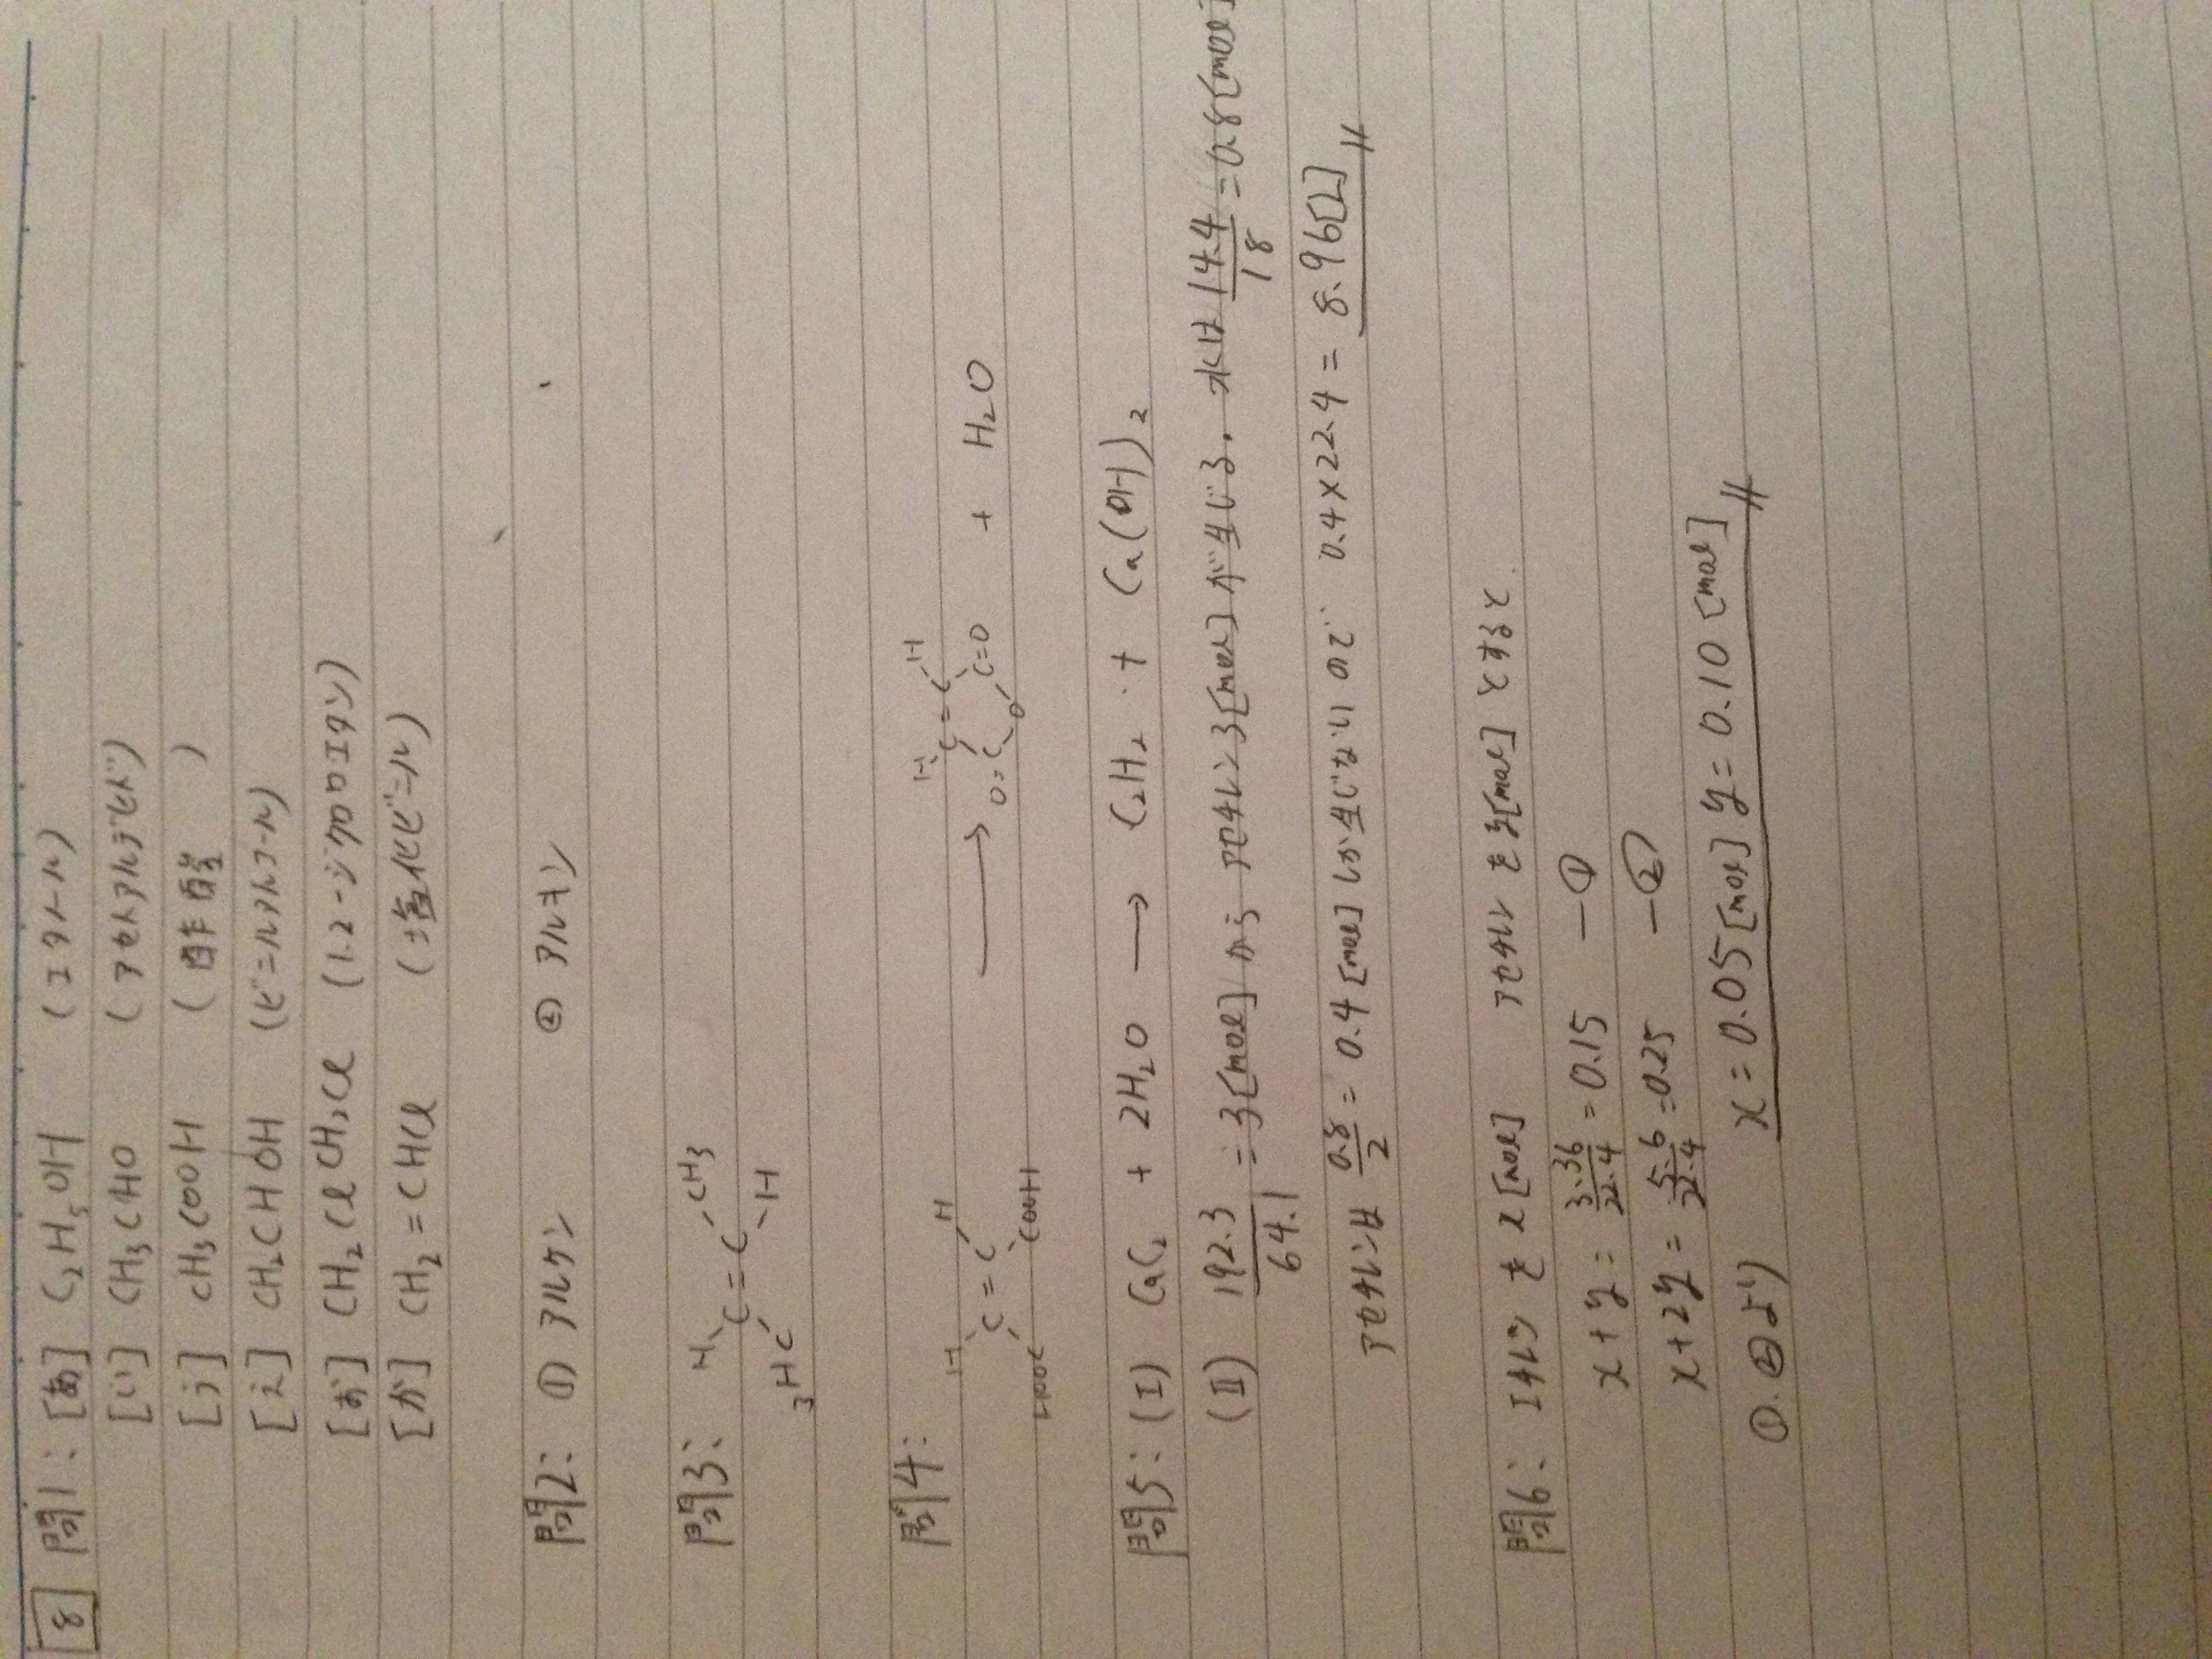 8 問1: [あ] C₂H₅OH (エタノール)
[い] CH₃CHO (アセトアルデヒド)
[う] CH₃COOH (酢酸)
[え] CH₂CHOH (ビニルアルコール)
[お] CH₂ClCH₂Cl (1.2-ジクロロエタン)
[か] CH₂=CHCl (塩化ビニル)
問2: ① アルケン ② アルキン
問3:
H CH₃
C=C
₃HC H
問4:
H H
C=C
HOOC COOH
→
H H
C=C
O=C C=O
O
+ H₂O
問5: (I) CaC₂ + 2H₂O → C₂H₂ + Ca(OH)₂
(II) 192.3/64.1 = 3[mol] から アセチレン3[mol]が生じる. 水は 14.4/18 = 0.8[mol]
アセチレンは 0.8/2 = 0.4[mol]しか生じないので 0.4×22.4 = 8.96[L]
問6: エチレン を x[mol] アセチレン を y[mol] とすると
x+y = 3.36/22.4 = 0.15 —①
x+2y = 5.6/22.4 = 0.25 —②
①.②より x=0.05[mol] y=0.10[mol]